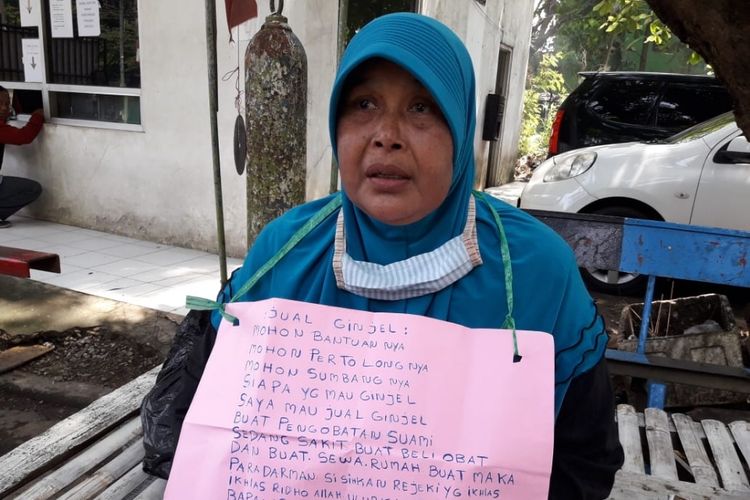 JUAL GINJEL:
MOHON BANTUAN NYA
MOHON PERTOLONG NYA
MOHON SUMBANG NYA
SIAPA YG MAU GINJEL
SAYA MAU JUAL GINJEL
BUAT PENGOBATAN SUAMI
SEDANG SAKIT BUAT BELI OBAT
DAN BUAT. SEWA. RUMAH BUAT MAKA
PARA DARMAN SISIHKAN REJEKI YG IKHLAS
IKHLAS RIDHO ALLAH
BAPA